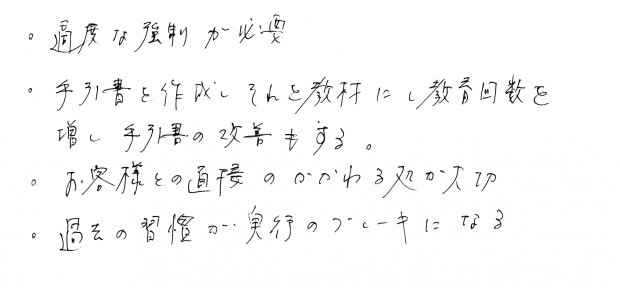 。過度な強制が必要
。手引書を作成しそれを教材にし教育回数を
増し手引書の改善もする。
。お客様との直接のかかわる処が大切
。過去の習慣が実行のブレーキになる